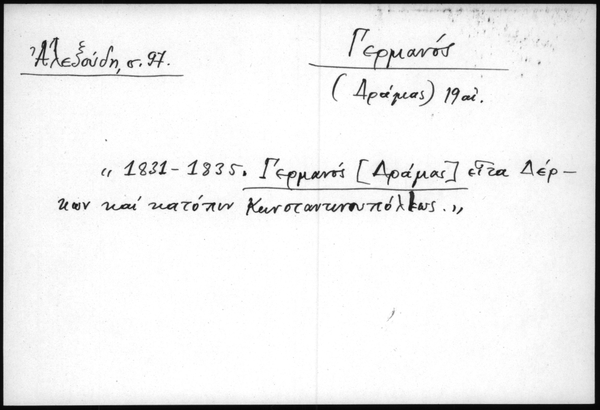 Ἀλεξούδη, σ. 97.
Γερμανός
(Δράμας) 19 αἰ.
„ 1831 - 1835. Γερμανός [Δράμας] εἶτα Δέρ-
κων καί κατόπιν Κωνσταντινουπόλεως. „